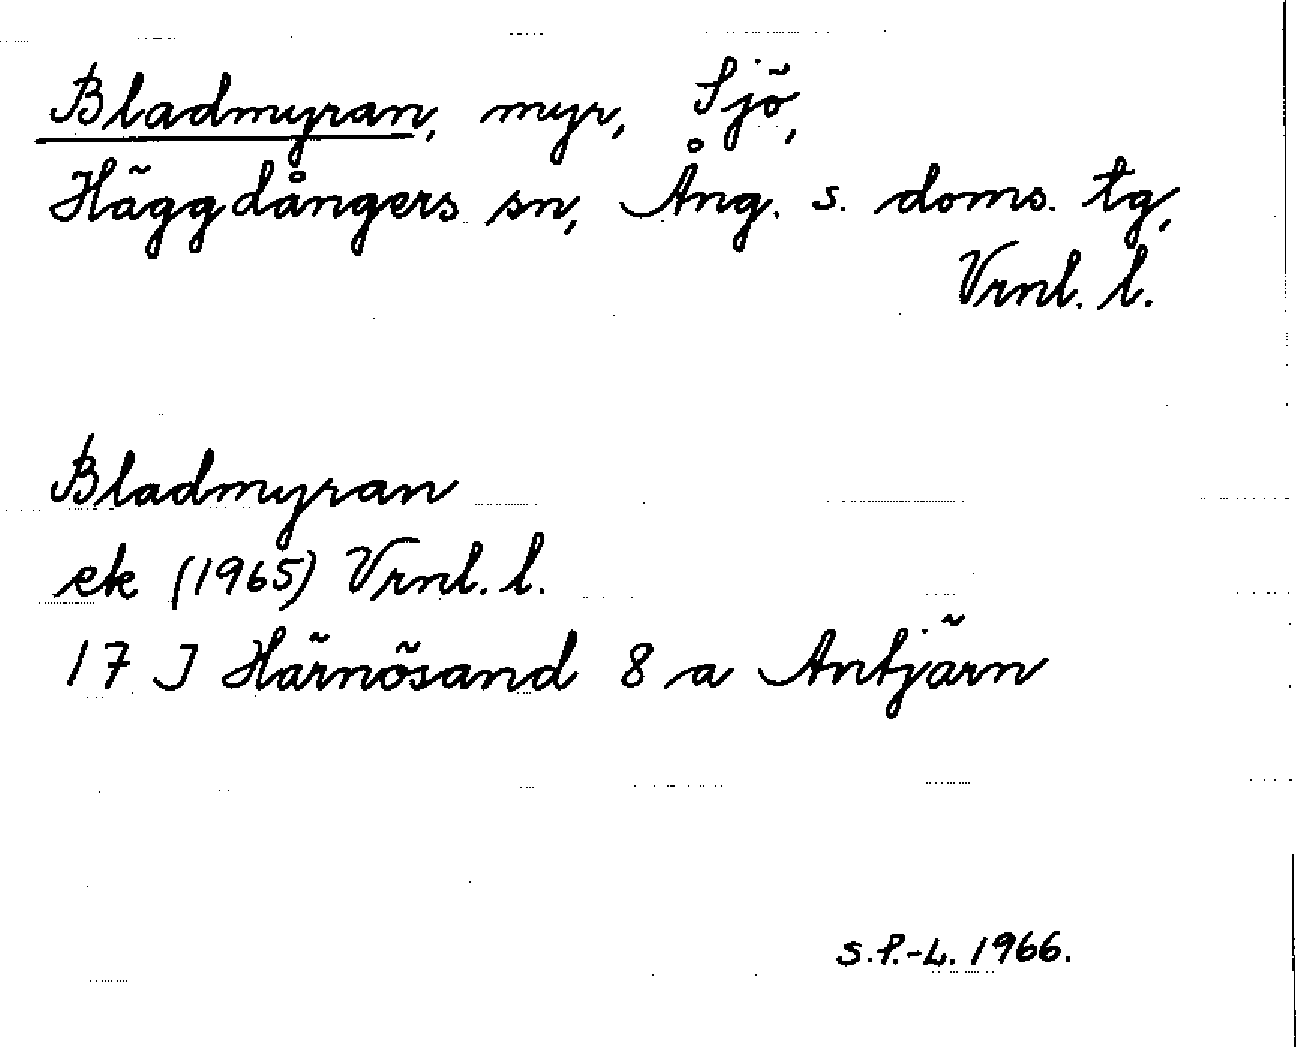 Bladmyran, myr, Sjö,
Häggdångers sn, Ång. s. doms. tg,
Vrnl. l.
Bladmyran
ek (1965) Vrnl. l.
17 J Härnösand 8 a Antjärn
S.P.-L. 1966.